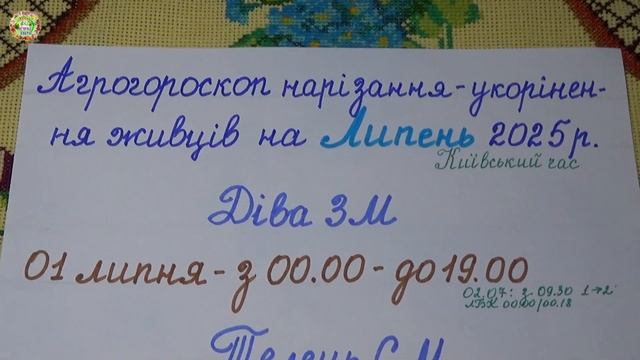 Агрогороскоп нарізання-укорінен-
ня живців на Липень 2025р.
Київський час
Діва ЗМ
01 липня - з 00.00 - до 19.00
02.07: з 09.30 1→2
00.00/00.18
Телець С.М